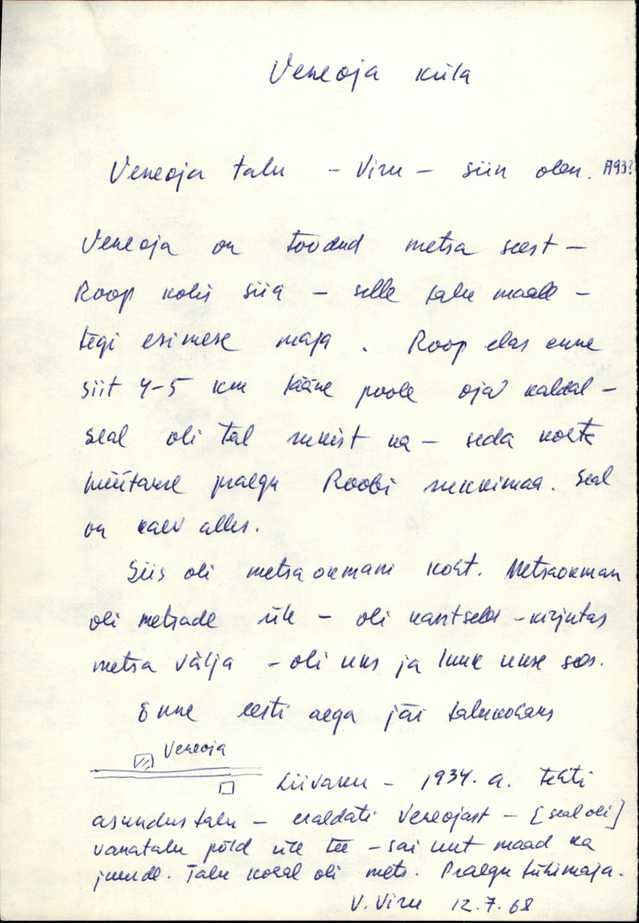 Veneoja küla
Veneoja talu – Viru – siin olen.
Veneoja on toodud metsa seest –
Roop kolis siia – selle talu maale –
tegi esimese maja. Roop elas enne
siit 4-5 km lääne poole oja kaldal –
seal oli tal rukist ka – seda kohta
hüütakse praegu Roobi rukkimaa. Seal
on kaev alles.
Siis oli metsa okmani koht. Metsaokman
oli metsade üle – oli kantselei – kirjutas
metsa välja – oli uks ja luuk ukse sees.
Enne eesti aega jäi talukohaks
Veneoja
Liivaku – 1934. a. tehti
asundustalu – eraldati Veneojast – [seal oli]
vanatalu põld üle tee – sai uut maad ka
juurde. Talu kohal oli mets. Praegu tühi maja.
V. Viru 12.7.68